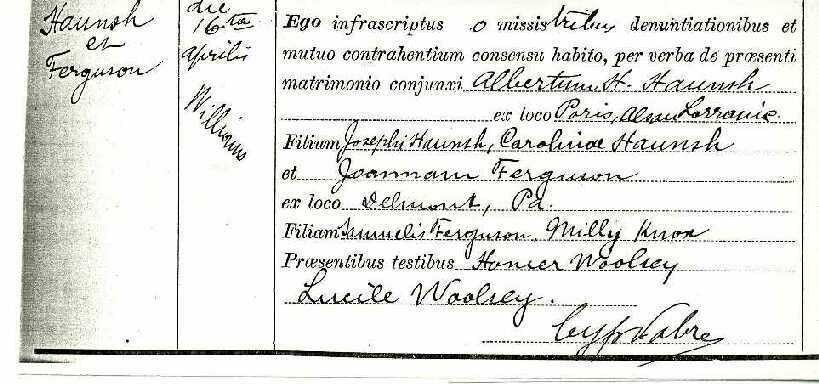 Haunsh
et
Ferguson
die
16ta
Aprilis
Williams
Ego infrascriptus omissis tribus denuntiationibus et
mutuo contrahentium consensu habito, per verba de præsenti
matrimonio conjunxi Albertum H. Haunsh
ex loco Paris, Alsace Lorraine.
Filium Josephi Haunsh, Carolinae Haunsh
et Joannam Ferguson
ex loco Delmont, Pa.
Filiam Samuelis Ferguson, Milly Knox
Præsentibus testibus Homer Woolsey
Lucile Woolsey.
Fabre